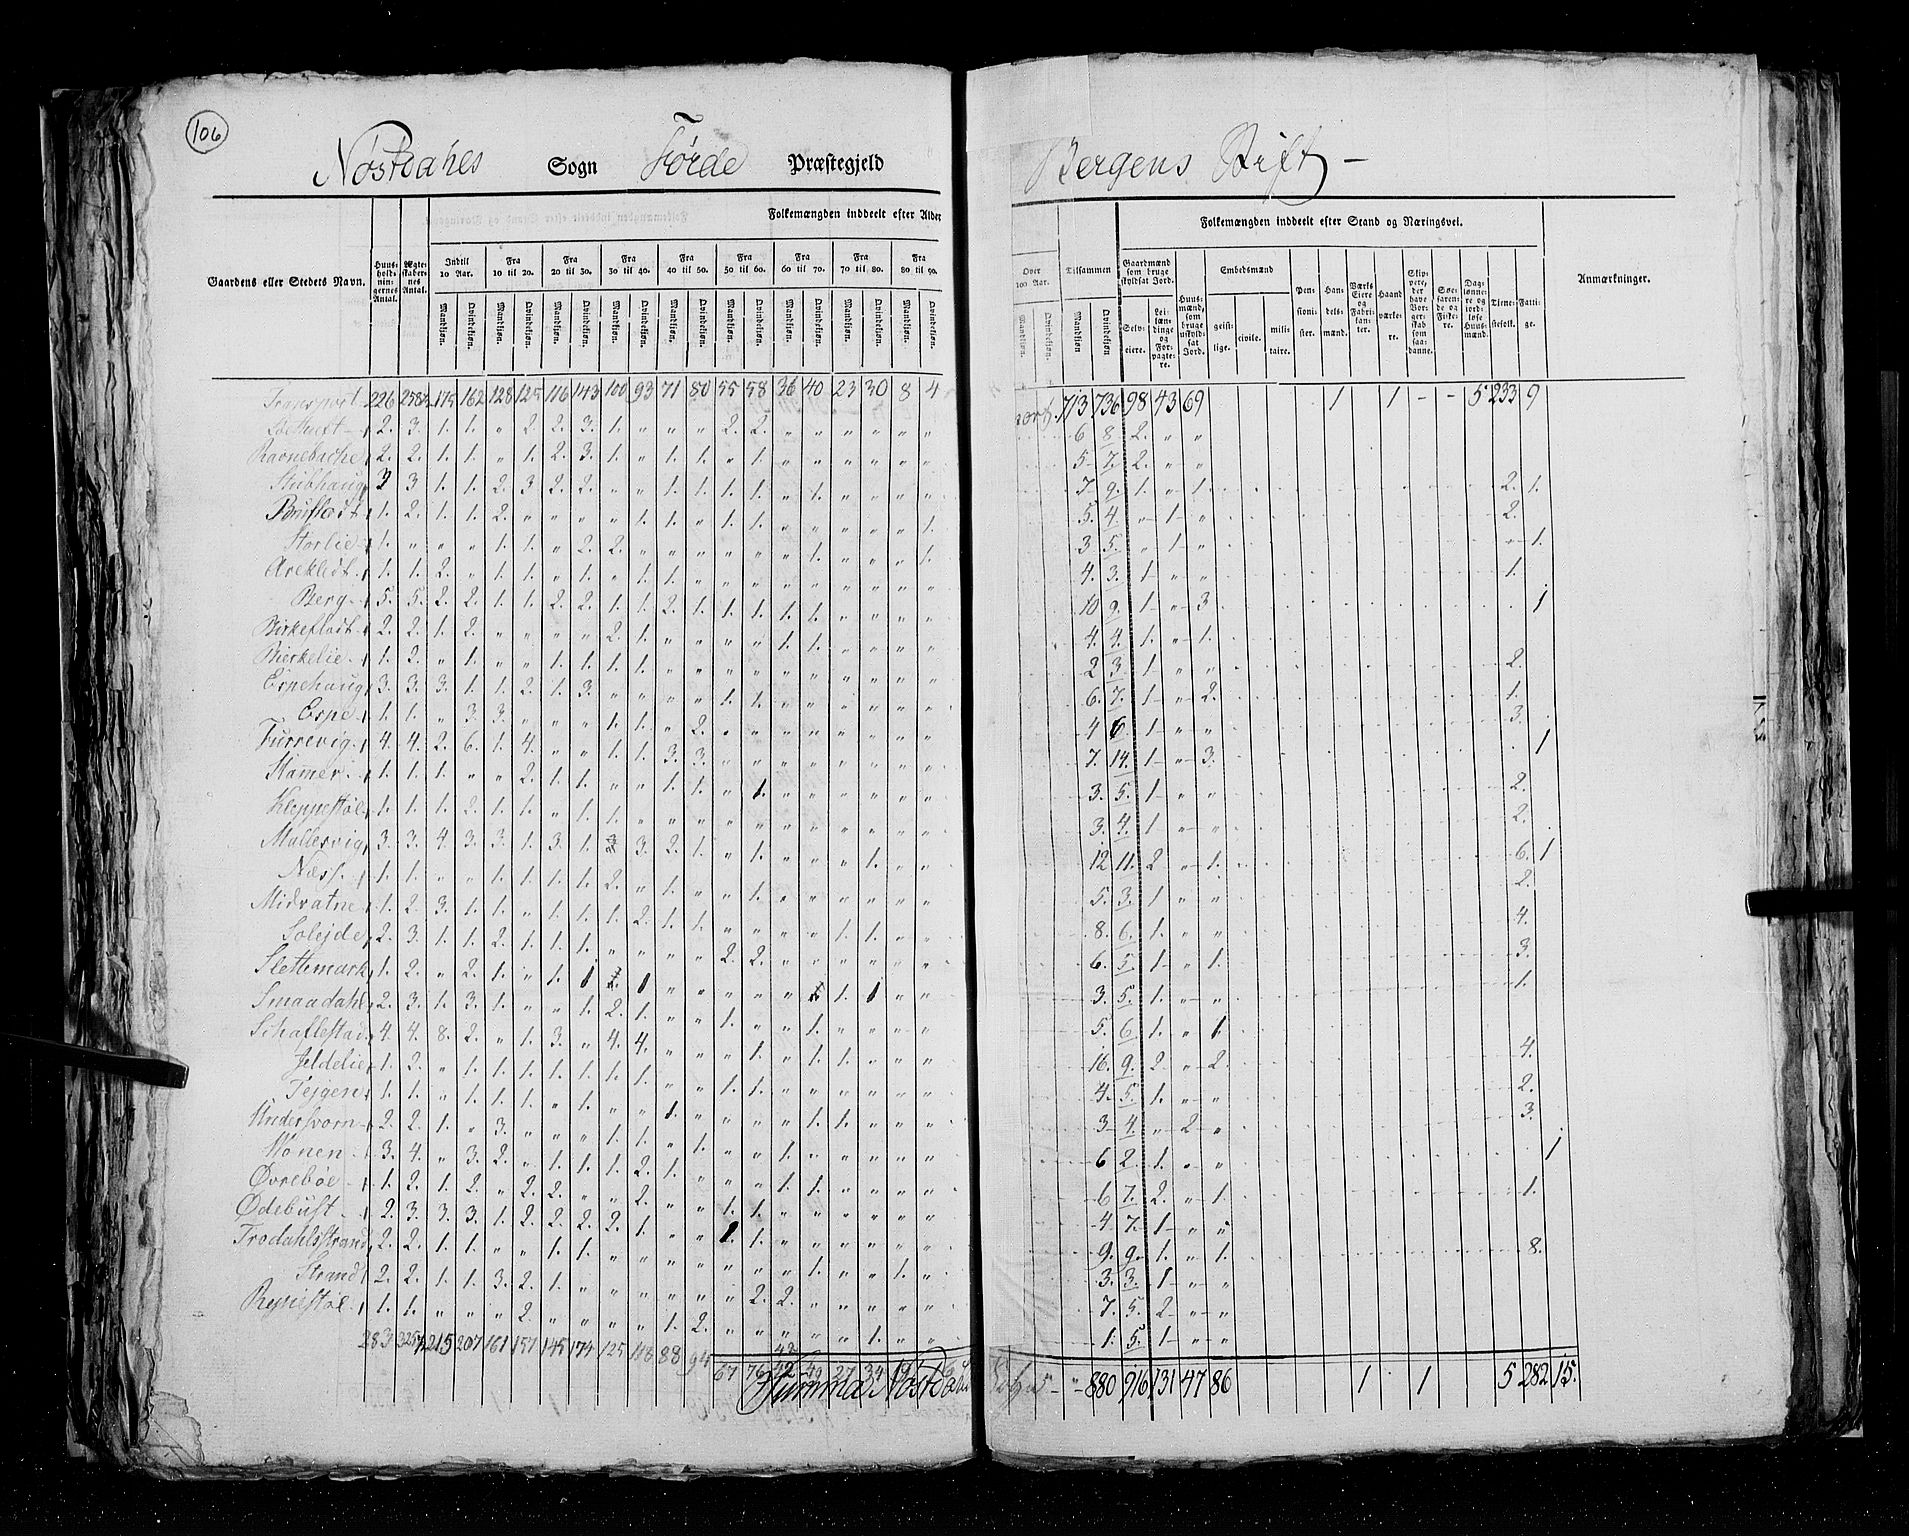 106
Nøstdahls Sogn Førde Præstegjeld
Bergens Stift –
Gaardens eller Stedets Navn.
Huus-holdnin-gernes Antal.
Ægte-skaber-nes Antal.
Folkemængden inddeelt efter Alder
Indtill 10 Aar.
Fra 10 til 20.
Fra 20 til 30.
Fra 30 til 40.
Fra 40 til 50.
Fra 50 til 60.
Fra 60 til 70.
Fra 70 til 80.
Fra 80 til 90.
Mandkjøn. Qvindekjøn. Mandkjøn. Qvindekjøn. Mandkjøn. Qvindekjøn. Mandkjøn. Qvindekjøn. Mandkjøn. Qvindekjøn. Mandkjøn. Qvindekjøn. Mandkjøn. Qvindekjøn. Mandkjøn. Qvindekjøn. Mandkjøn. Qvindekjøn.
Over 100 Aar.
Mandkjøn Qvindekjøn.
Tilsammen
Mandkjøn Qvindekjøn
Folkemængden inddeelt efter Stand og Næringsvei.
Gaardmænd som bruge skyldsat Jord.
Selv-eiere.
Lei-læn-dinge og For-pagte-re.
Huus-mænd, som bruge uskyld-sat Jord.
Embedsmænd
geist-lige. civile. mili-taire.
Pen-sioni-ster.
Han-dels-mænd.
Værks Eiere og Fabri-kan-ter.
Haand værke-re.
Skip-pere, der have Bor-ger-skab som saa-danne.
Søe-farende og Fiske-re.
Dag-lønne-re og jord-løse Huus-mænd.
Tiene-stefolk.
Fatti-ge.
Anmærkninger.
Transport 226 258 175 162 128 125 116 143 100 93 71 80 55 58 36 40 23 30 8 4
713 736 98 43 69 1 1 - - 5 233 9
2. 3. 1. 1. " 2. 2. 3. 1. " " " 2. 2. " " " " " "
6 8. 2. " "
Ravnebache 2. 2. 1. 1. " 1. 2. 3. 1. " 1. 1. " 1. " " " " " "
5. 7. 2. – "
Stubhaug 3 3 1. 1. 2. 3 2. 2. " " 1. 1. 1. 1. " 1. " " " "
7 9. 1. " 1. 2. 1.
Bruflodt 1. 2. 1. 1. 2. " " " " 1. 1. " 1. 1. " " " " " 1.
5. 4. " 1 " 2.
Storlie 1. " " " 1. 1. " 2. 2. " " " " " " 1. " " " 1.
3. 5. " 1 " " 1.
Areklidt 1. 1. 2. " 1. 1. " 1. " 1. 1. " " " " " " " " "
4. 3. 1 " " 1.
Berg 5. 5. 2. 2. 1. 1. 2. 2. 1. 1. 2. 1. 1. 1. 1. 1. " " " "
10 9. 1 " 3. 1
Birkeflodt 2. 2. 1. 2. " " " " 2. 1. " " " " 1. 1. " " " "
4. 4. 1. " 1.
Bierkelie 1. 2. " 1. " " 1. 1. 1. 1. " " " " " " " " " "
2 3. 1 " " 2.
Espehaug 3. 3. 3. 1. 1. 2. 1. 3. " " " " 1. 1. " " " " " "
6. 7. 1 " 2. 1.
Espe 1. 1. " 3. 3. " " " 1. 1. " 2. " " " " " " " "
4 6 1 " " 3.
Furrevig 4. 4. 2. 6. 1. 4. " " 1. 1. 3. 3. " " " " " " " "
7. 14. 1 " 3. 1
Hamer 1. 1. 1. " " 2. 1. 1. " " 1. 1. " 1. " " " " " "
3. 5. 1 " " 2.
Kleppestøl 1. 1. 1. 2. 1. 1. " 1. 1. " " " " " " " " " " "
3. 4. 1 " " 2.
Mallesvig 3. 3. 4. 3. 3. 1. 3. 1. 3. 2. 1. " 1. " " " 1. " "
12 11. 2 " 1. 6. 1
Næss 1. 1. " " 1. 1. 1. 1. 2. " 1. " " 1. " " " " " "
5. 3. 1 " " 2.
Midvatne 1. 2. 3. 1. 1. " 1. 1. 1. 2. 1. 1. " " " " 1. 1. " "
8. 6. 1. " " 4.
Solejde 2. 3. 1. 1. 2. 1. 1. 1. " " " " 2. 2. " " " " " "
6. 5. 1. " 1. 3.
Slettemark 1. 2. " 2. 1. " 1. 1 1 " " " " " 1. 1 " "
3. 5. 1. " " 1.
Smaadahl 2. 3. 1. 3. 1. " " 1. 2. 1. " " 1. " " 1. " " " "
5. 6. 1. " 1.
4. 4. 8. 2. " 1. 3. " 4. 4. " " " 1. " 1. 1. " " "
16. 9. 2. " 2. 4.
Jeldelie 1. 2. " 1. 1. 1. 1. 1. 1. 1. " " 1. 1. " " " " " "
4. 5. 1. " " 2.
Tejgen 1. 1. " 1. 1. 1. " 1. " " 1. " " " " 1. 1. " " "
3 4. " 2 " 3.
2. 2. 1. " 3. " " " 1. 1. " 1. " " 1. " " " " "
6 2. 1. " " 1
Monen 3. 4. " 3. 2. " 1. 1. 1. 2. 1. " " " 1. 1. " " " "
6 7. 2. " 1. 1.
Øvrebøe 1. 2. 1. 2. " 2. 2. " " 2. " " 1. 1. " " " " " "
4 7. 1 " "
Ødebust 2. 3. 3. 3. 1. 2. 2. 2. 2. 1. " " 1. 1. " " " " " "
9. 9. 1. " 1. 8.
Trodahlsstrand 2. 2. 1. 1. " " 1. 1. " " " " " " " 1. " " 1. "
3. 3. 1 " "
Strand 2. 2. 1. 1. 3. 2. 1. " " " " " " 2. 2. " " " " "
7. 5. 2 " "
1. 1. " " " 2. " " " " 1. 2. " " " " " 1. " "
1. 5. 1 " "
283 325 215 207 161 157 145 174 125 118 88 94 67 76 42 49 27 34
Summa Nøstdahls Sogn - " 880 916 131 47 86 1 1 5 282 15.